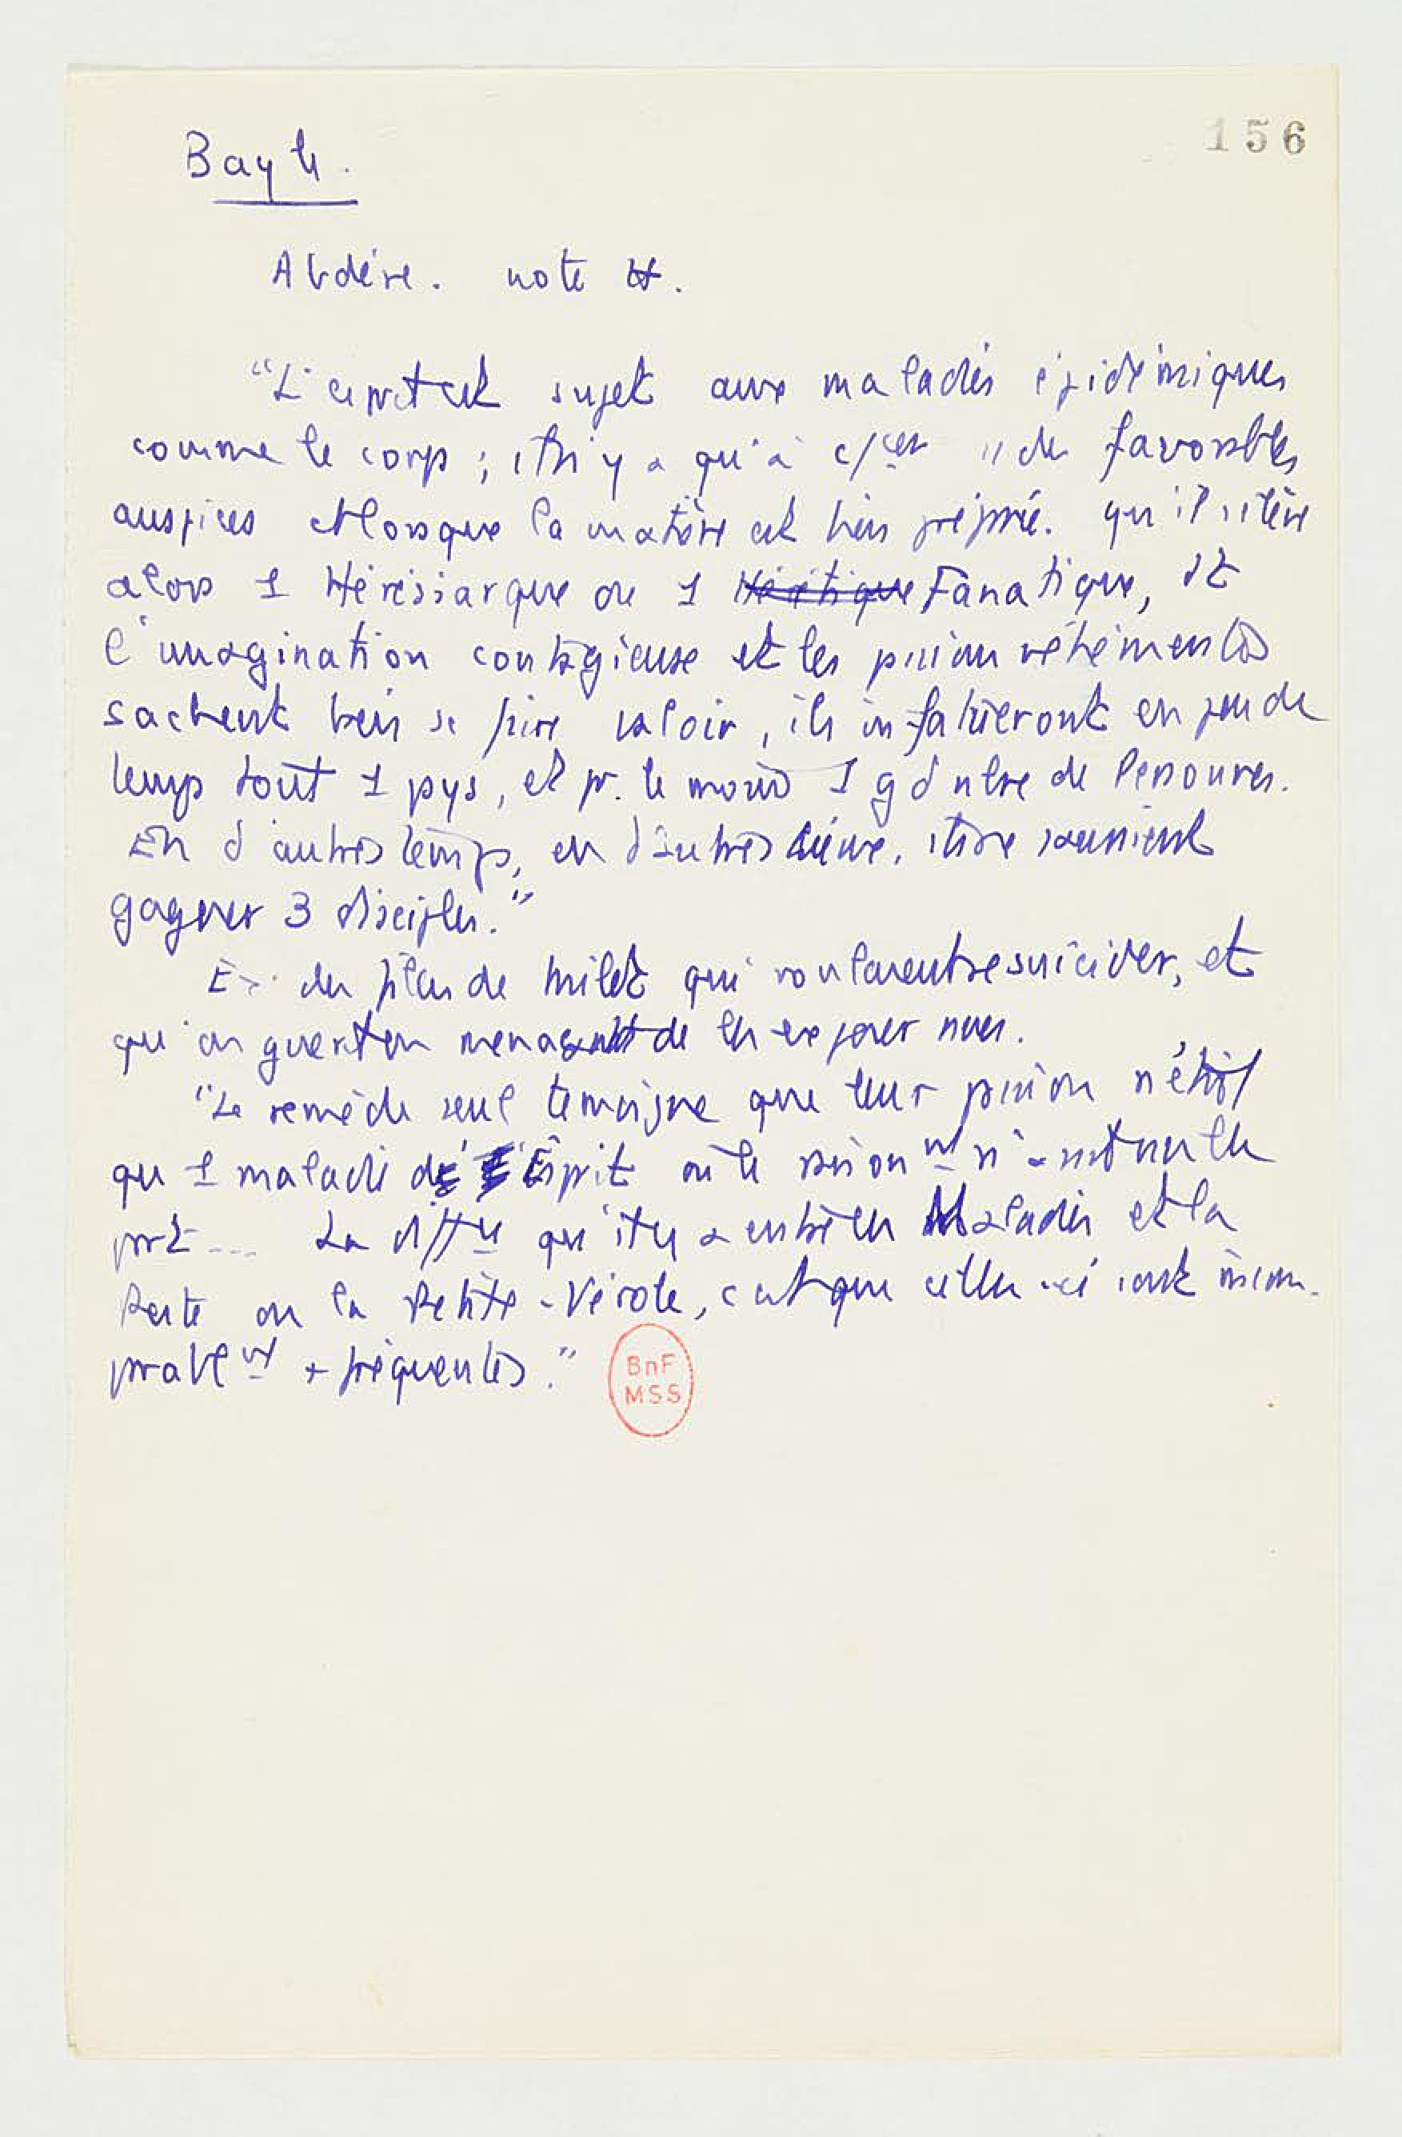 156
Bayle.
Abdère. note H.
"L'esprit est sujet aux maladies épidémiques
comme le corps ; il n'y a qu'à c/cer ss de favorables
auspices et lorsque la matière est bien préparée. qu'il s'élève
alors 1 Hérésiarque ou 1 Hérétique Fanatique, dt
l'imagination contagieuse et les passions véhémentes
sachent bien se faire valoir, ils infatueront en peu de
temps tout 1 pays, et pr. le moins 1 gd nbre de Personnes.
En d'autres temps, en d'autres lieux, ils ne sauraient
gagner 3 disciples."
Ex. des filles de Milet qui voulaient se suicider, et
qu'on guérit en menaçant de les exposer nues.
"Le remède seul témoigne que leur passion n'était
qu 1 maladie d'Esprit où le raisonnt n'a nulle
part ... La diffce qu'il y a entre les Maladies et la
Peste ou la Petite-Vérole, c'est que celles-ci sont incom-
parablt + fréquentes."
BnF
MSS